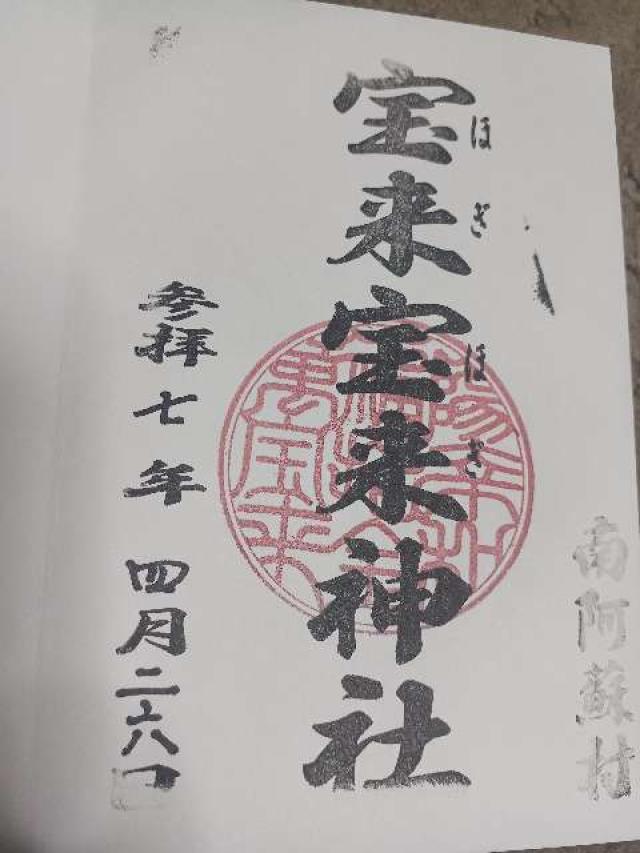 南阿蘇村
宝来宝来神社
ほぎ ほぎ
参拝七年 四月二六日